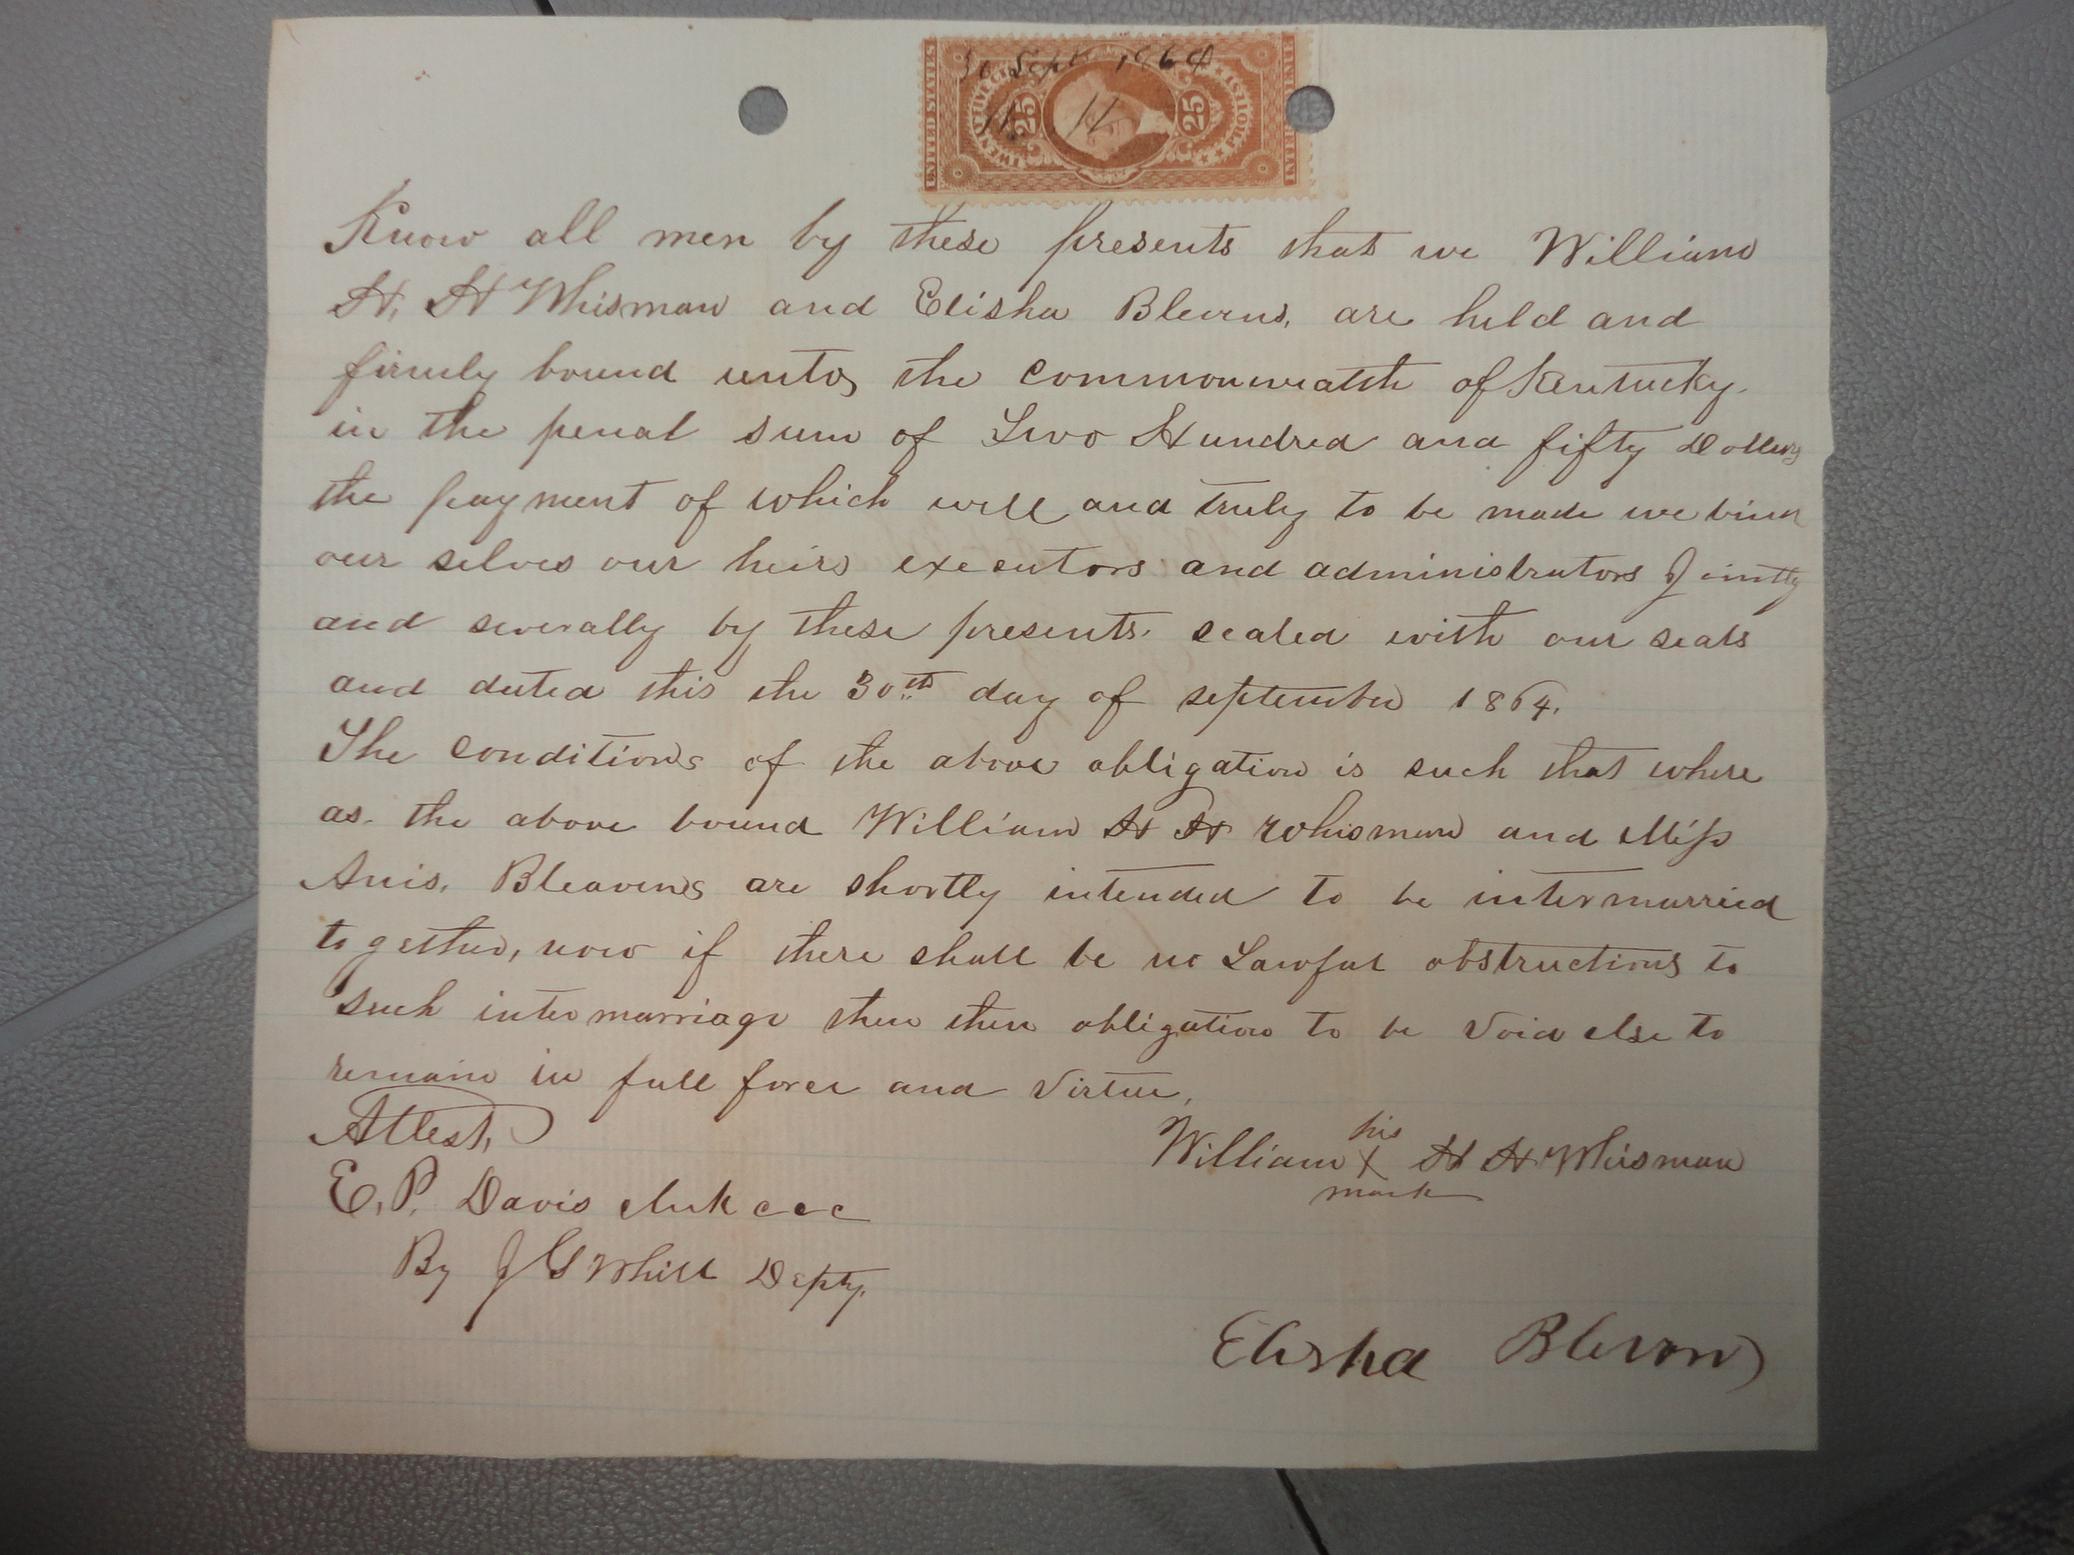 30 Septr 1864
UNITED STATES
TWENTY FIVE CTS
25
25
Know all men by these presents that we William
H. H Whisman and Elisha Blevins, are held and
firmly bound unto the commonwealth of Kentucky.
in the penal sum of Two Hundred and fifty Dollars
the payment of which well and truly to be made we bind
our selves our heirs executors and administrators Jointly
and severally by these presents. sealed with our seals
and dated this the 30th day of september 1864.
The conditions of the above obligation is such that where
as. the above bound William H H Whisman and Miss
Anis. Bleavens are shortly intended to be intermarried
together, now if there shall be no Lawful obstructions to
such intermarriage then then obligation to be void else to
remain in full force and virtue,
Attest,
his
William X H H Whisman
mark
E. P. Davis clerk ccc
By J G Whitt Depty.
Elisha Blevins